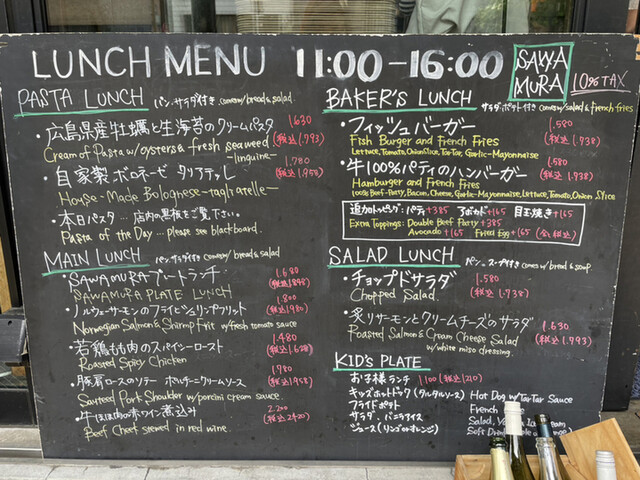 LUNCH MENU 11:00-16:00
SAWA
MURA
10% TAX
PASTA LUNCH パン、サラダ付き comes w/bread & salad
・広島県産牡蠣と生海苔のクリームパスタ 1.630
Cream of Pasta w/oysters & fresh seaweed (税込 1.793)
-linguine-
・自家製ボロネーゼ タリアテッレ 1.780
House-Made Bolognese -tagliatelle- (税込 1.958)
・本日パスタ... 店内の黒板をご覧下さい。
Pasta of the Day ... please see blackboard.
MAIN LUNCH パン、サラダ付き comes w/bread & salad
・SAWAMURAプレートランチ 1.680
SAWAMURA PLATE LUNCH (税込 1848)
・ノルウェーサーモンのフライと 1.800
Norwegian Salmon & Shrimp Frit w/fresh tomato sauce (税込 1980)
・若鶏もも肉のスパイシーロースト 1.480
Roasted Spicy Chicken (税込 1.628)
・豚肩ロースのソテー ポルチーニクリームソース 1.780
Sauteed Pork Shoulder w/porcini cream sauce. (税込 1.958)
・牛ほほ肉の赤ワイン煮込み 2.200
Beef Cheef stewed in red wine. (税込 2.420)
BAKER'S LUNCH サラダ、ポテト付き comes w/salad & french fries
・フィッシュバーガー 1.580
Fish Burger and French Fries (税込 1.738)
Lettuce, Tomato, Onion Slice, Tar-Tar, Garlic-Mayonnaise
・牛100%パティのハンバーガー 1.580
Hamburger and French Fries (税込 1.738)
100% Beef-Patty, Bacon, Cheese, Garlic-Mayonnaise, Lettuce, Tomato, Onion Slice
追加トッピング: パティ+385 アボカド+165 目玉焼き+165
Extra Toppings: Double Beef Party +385
Avocado +165 Fried Egg +165 (全て税込)
SALAD LUNCH パン、スープ付き comes w/bread & soup
・チョップドサラダ 1.580
Chopped Salad (税込 1.738)
・炙りサーモンとクリームチーズのサラダ 1.630
Roasted Salmon & Cream Cheese Salad (税込 1.793)
w/white miso dressing.
KID'S PLATE
お子様ランチ 1.100 (税込 1.210)
キッズホットドック (タルタルソース) Hot Dog w/TarTar Sauce
フライドポテト French
サラダ・バニラアイス Salad,
ジュース (リンゴ or オレンジ) Soft Drink